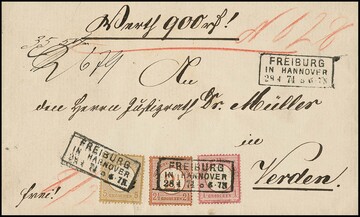 Werth 900 rf!
FREIBURG
IN HANNOVER
28 4 74 6-7N
An
den Herrn Justizrath Dr. Müller
in
Verden.
FREIBURG
IN HANNOVER
28 4 74 6-7N
FREIBURG
IN HANNOVER
28 4 74 6-7N
frei!